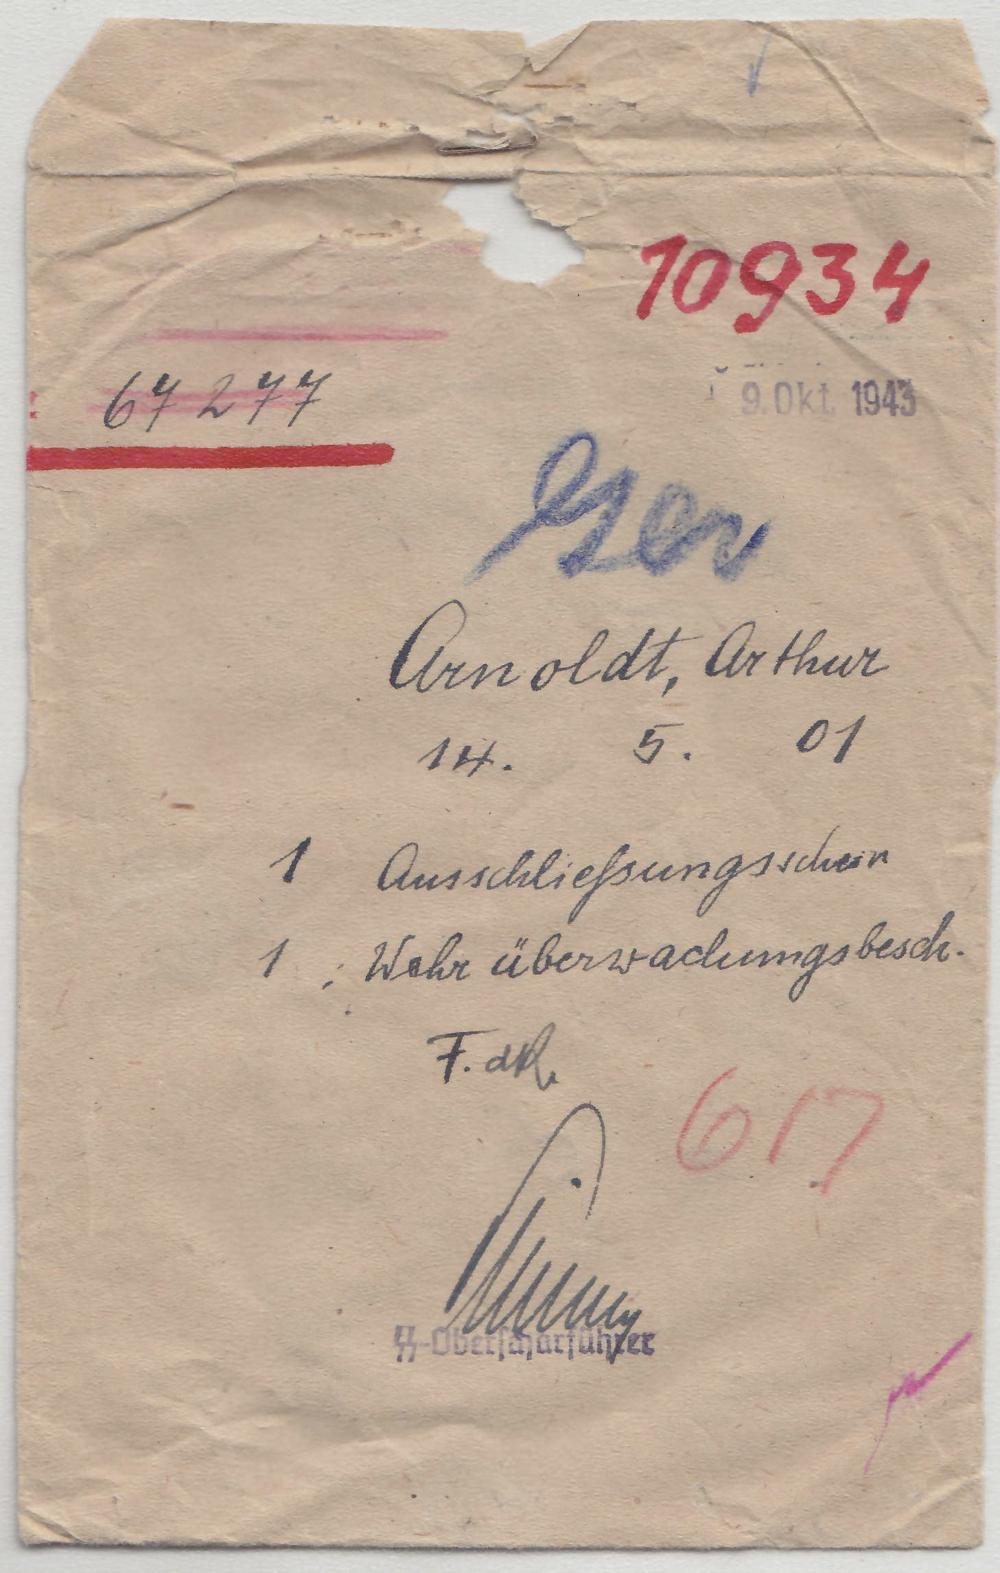 10934
67277
9. Okt. 1943
Gen
Arnoldt, Arthur
14. 5. 01
1 Ausschließungsschein
1 Wehrüberwachungsbesch.
F.d.R.
617
SS-Oberscharführer